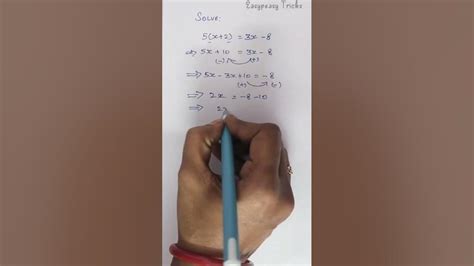 Easypeasy Tricks
SOLVE:
5(x+2) = 3x - 8
⇒ 5x + 10 = 3x - 8
(-) (+)
⇒ 5x - 3x + 10 = -8
(+) (-)
⇒ 2x = -8 - 10
⇒ 2x